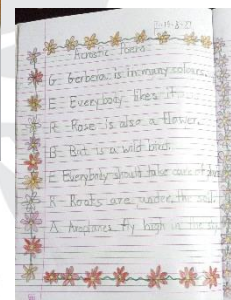 Acrostic Poem
G - Gerbera is in many colours.
E - Everybody likes it.
R - Rose is also a flower.
B - But is a wild
E Everybody should take care of
R - Roots are under the soil.
A Airplanes fly high in the